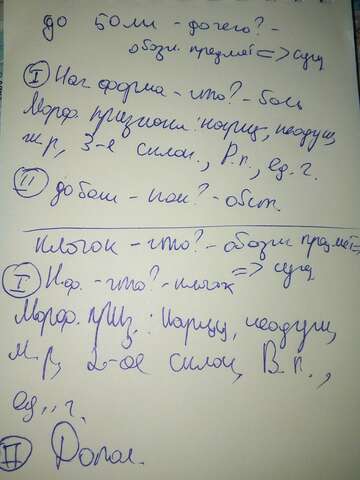 до боли - до чего? -
обозн. предмет => сущ
I Нач форма - что? - боль
Морф. признаки: нариц., неодуш,
ж.р, 3-е склон., Р.п., ед. ч.
II до боли - как? - обст.
клочок - что? - обозн предмет
=> сущ
I Н.ф. - что? - клочок
Морф. приз.: нариц, неодуш,
м.р, 2-ое склон, В.п.,
ед., ч.
II Допол.